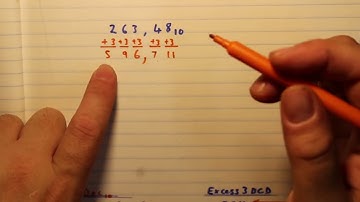 263,48₁₀
+3 +3 +3 +3 +3
5 9 6, 7 11
Excess 3 BCD